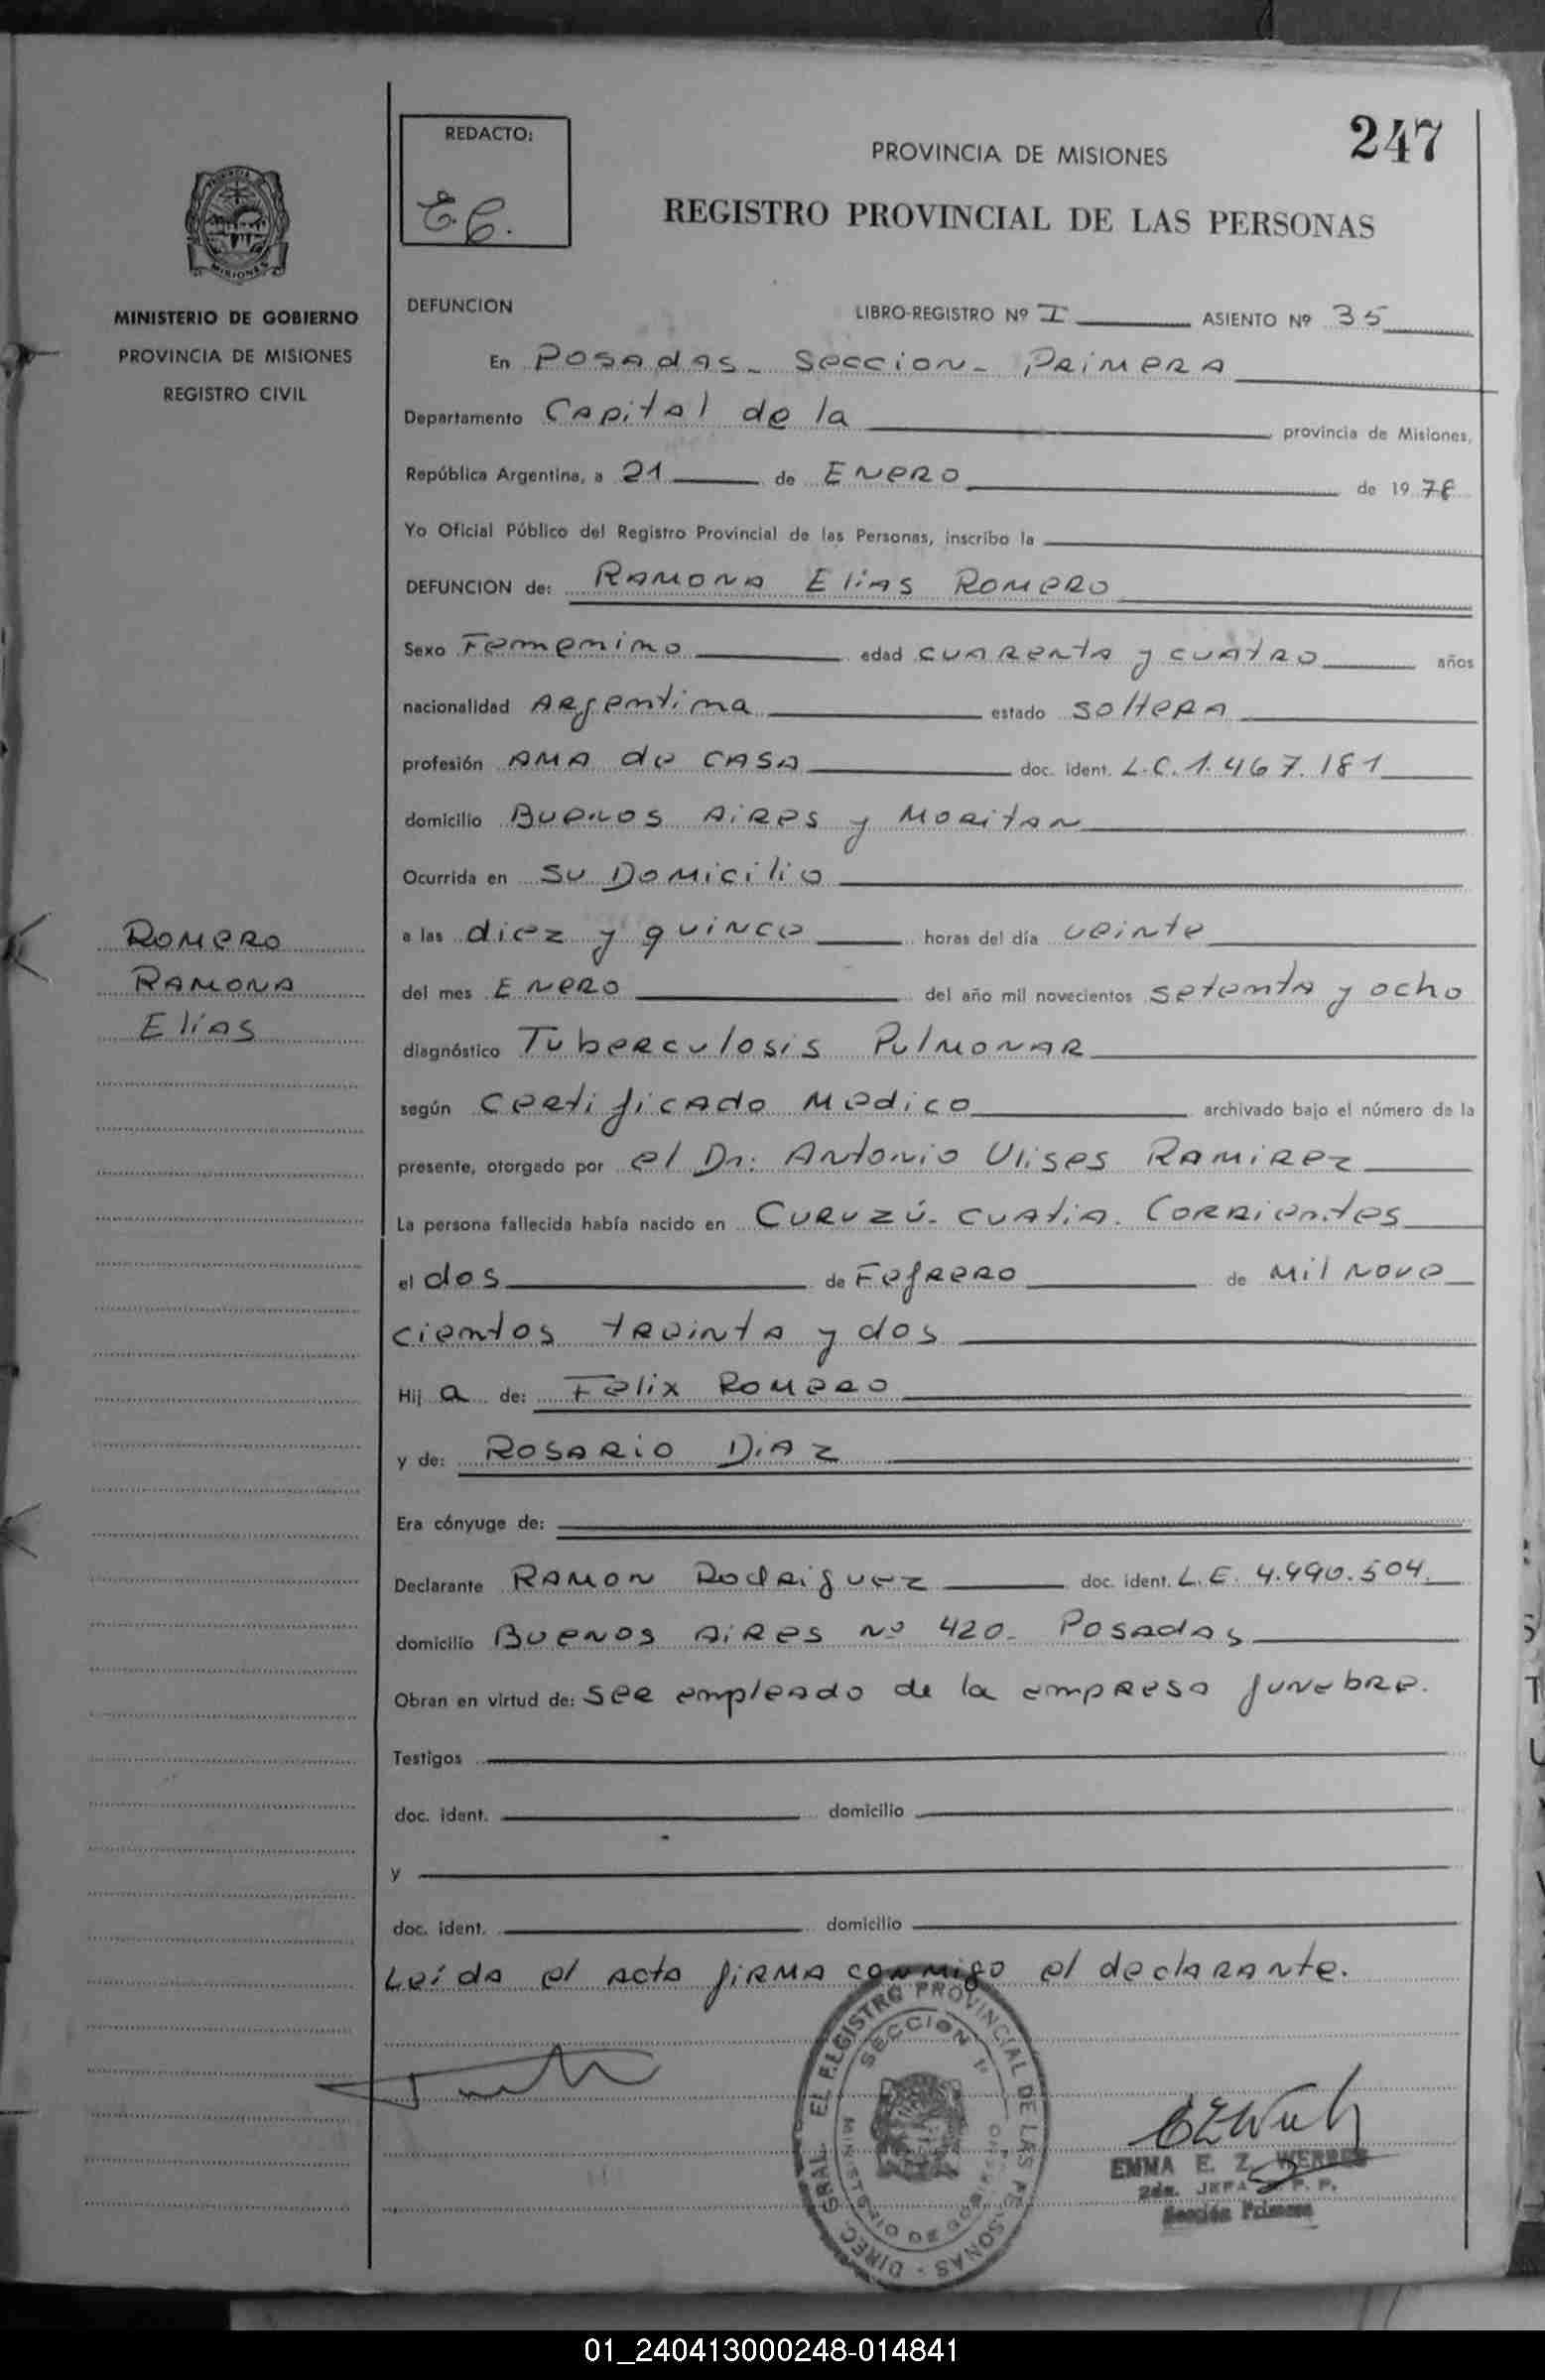 247
REDACTO:
E.C.
PROVINCIA DE MISIONES
REGISTRO PROVINCIAL DE LAS PERSONAS
MISIONES
MINISTERIO DE GOBIERNO
PROVINCIA DE MISIONES
REGISTRO CIVIL
DEFUNCION LIBRO-REGISTRO Nº I ASIENTO Nº 35
En Posadas - Seccion - Primera
Departamento Capital de la provincia de Misiones,
República Argentina, a 21 de Enero de 1978
Yo Oficial Público del Registro Provincial de las Personas, inscribo la
DEFUNCION de: Ramona Elias Romero
Sexo Femenino edad cuarenta y cuatro años
nacionalidad Argentina estado soltera
profesión ama de casa doc. ident. L.C. 1.467.181
domicilio Buenos Aires y Moritan
Ocurrida en su Domicilio
a las diez y quince horas del día veinte
del mes Enero del año mil novecientos setenta y ocho
diagnóstico Tuberculosis Pulmonar
según certificado medico archivado bajo el número de la
presente, otorgado por el Dr. Antonio Ulises Ramirez
La persona fallecida había nacido en Curuzú - cuatia. Corrientes
el dos de Fefrero de mil nove
cientos treinta y dos
Hij a de: Felix Romero
y de: Rosario Diaz
Era cónyuge de:
Declarante Ramon Rodriguez doc. ident. L.E. 4.990.504
domicilio Buenos Aires Nº 420 - Posadas
Obran en virtud de: ser empleado de la empresa funebre.
Testigos
doc. ident. domicilio
y
doc. ident. domicilio
Leída el acta firma conmigo el declarante.
Romero
Ramona
Elías
DIREC. GRAL. EL REGISTRO PROVINCIAL DE LAS PERSONAS -
SECCION 1ª
MINISTERIO DE GOBIERNO
EMMA E. Z. WERRES
2da. JEFA R. P. P.
Sección Primera
01_240413000248-014841